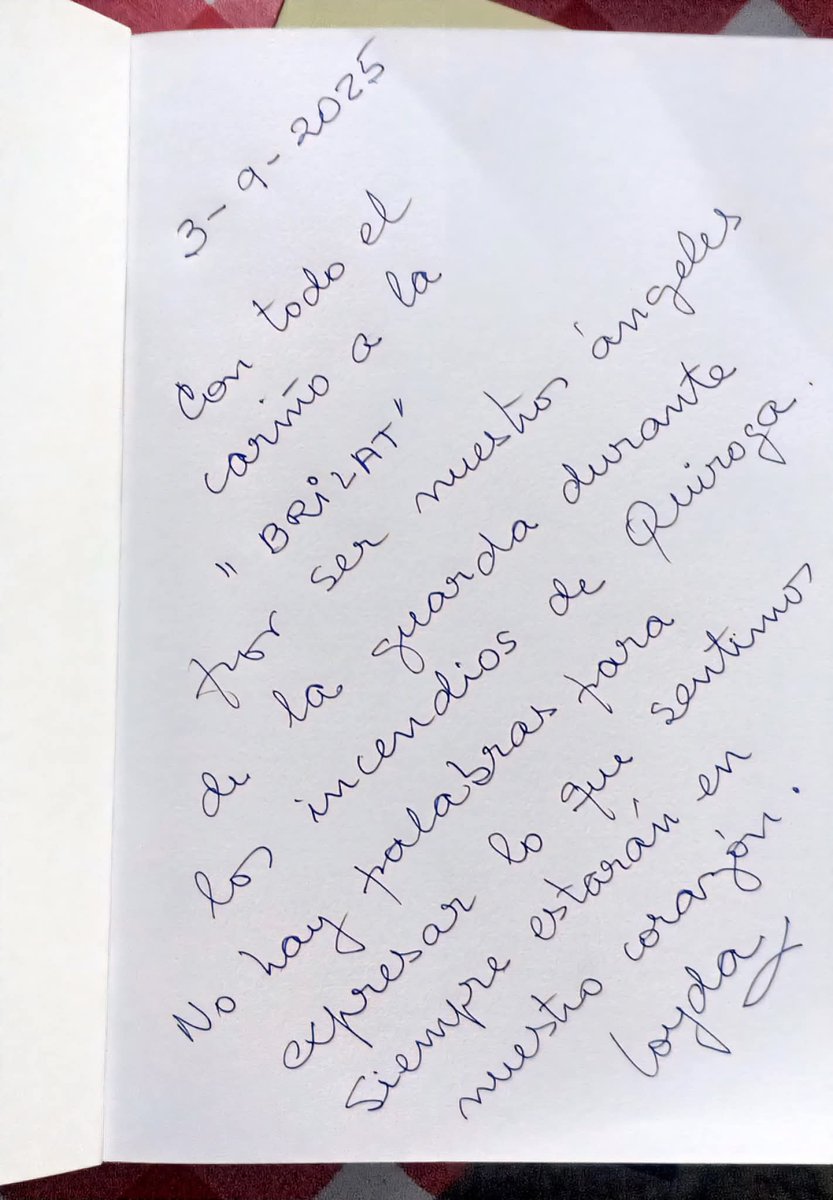 3-9-2025
Con todo el
cariño a la
"BRILAT"
por ser nuestros ángeles
de la guarda durante
los incendios de Quiroga.
No hay palabras para
expresar lo que sentimos
siempre estarán en
nuestro corazón.
Loyda